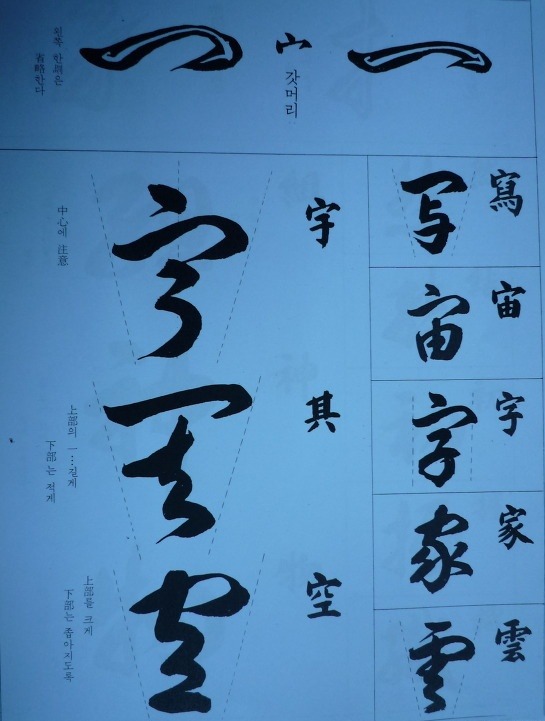 宀
갓머리
왼쪽 한획은
省略한다
寫
宙
字
家
雲
宇
中心에 注意
其
上部의 一…길게
下部는 적게
空
上部를 크게
下部는 좁아지도록